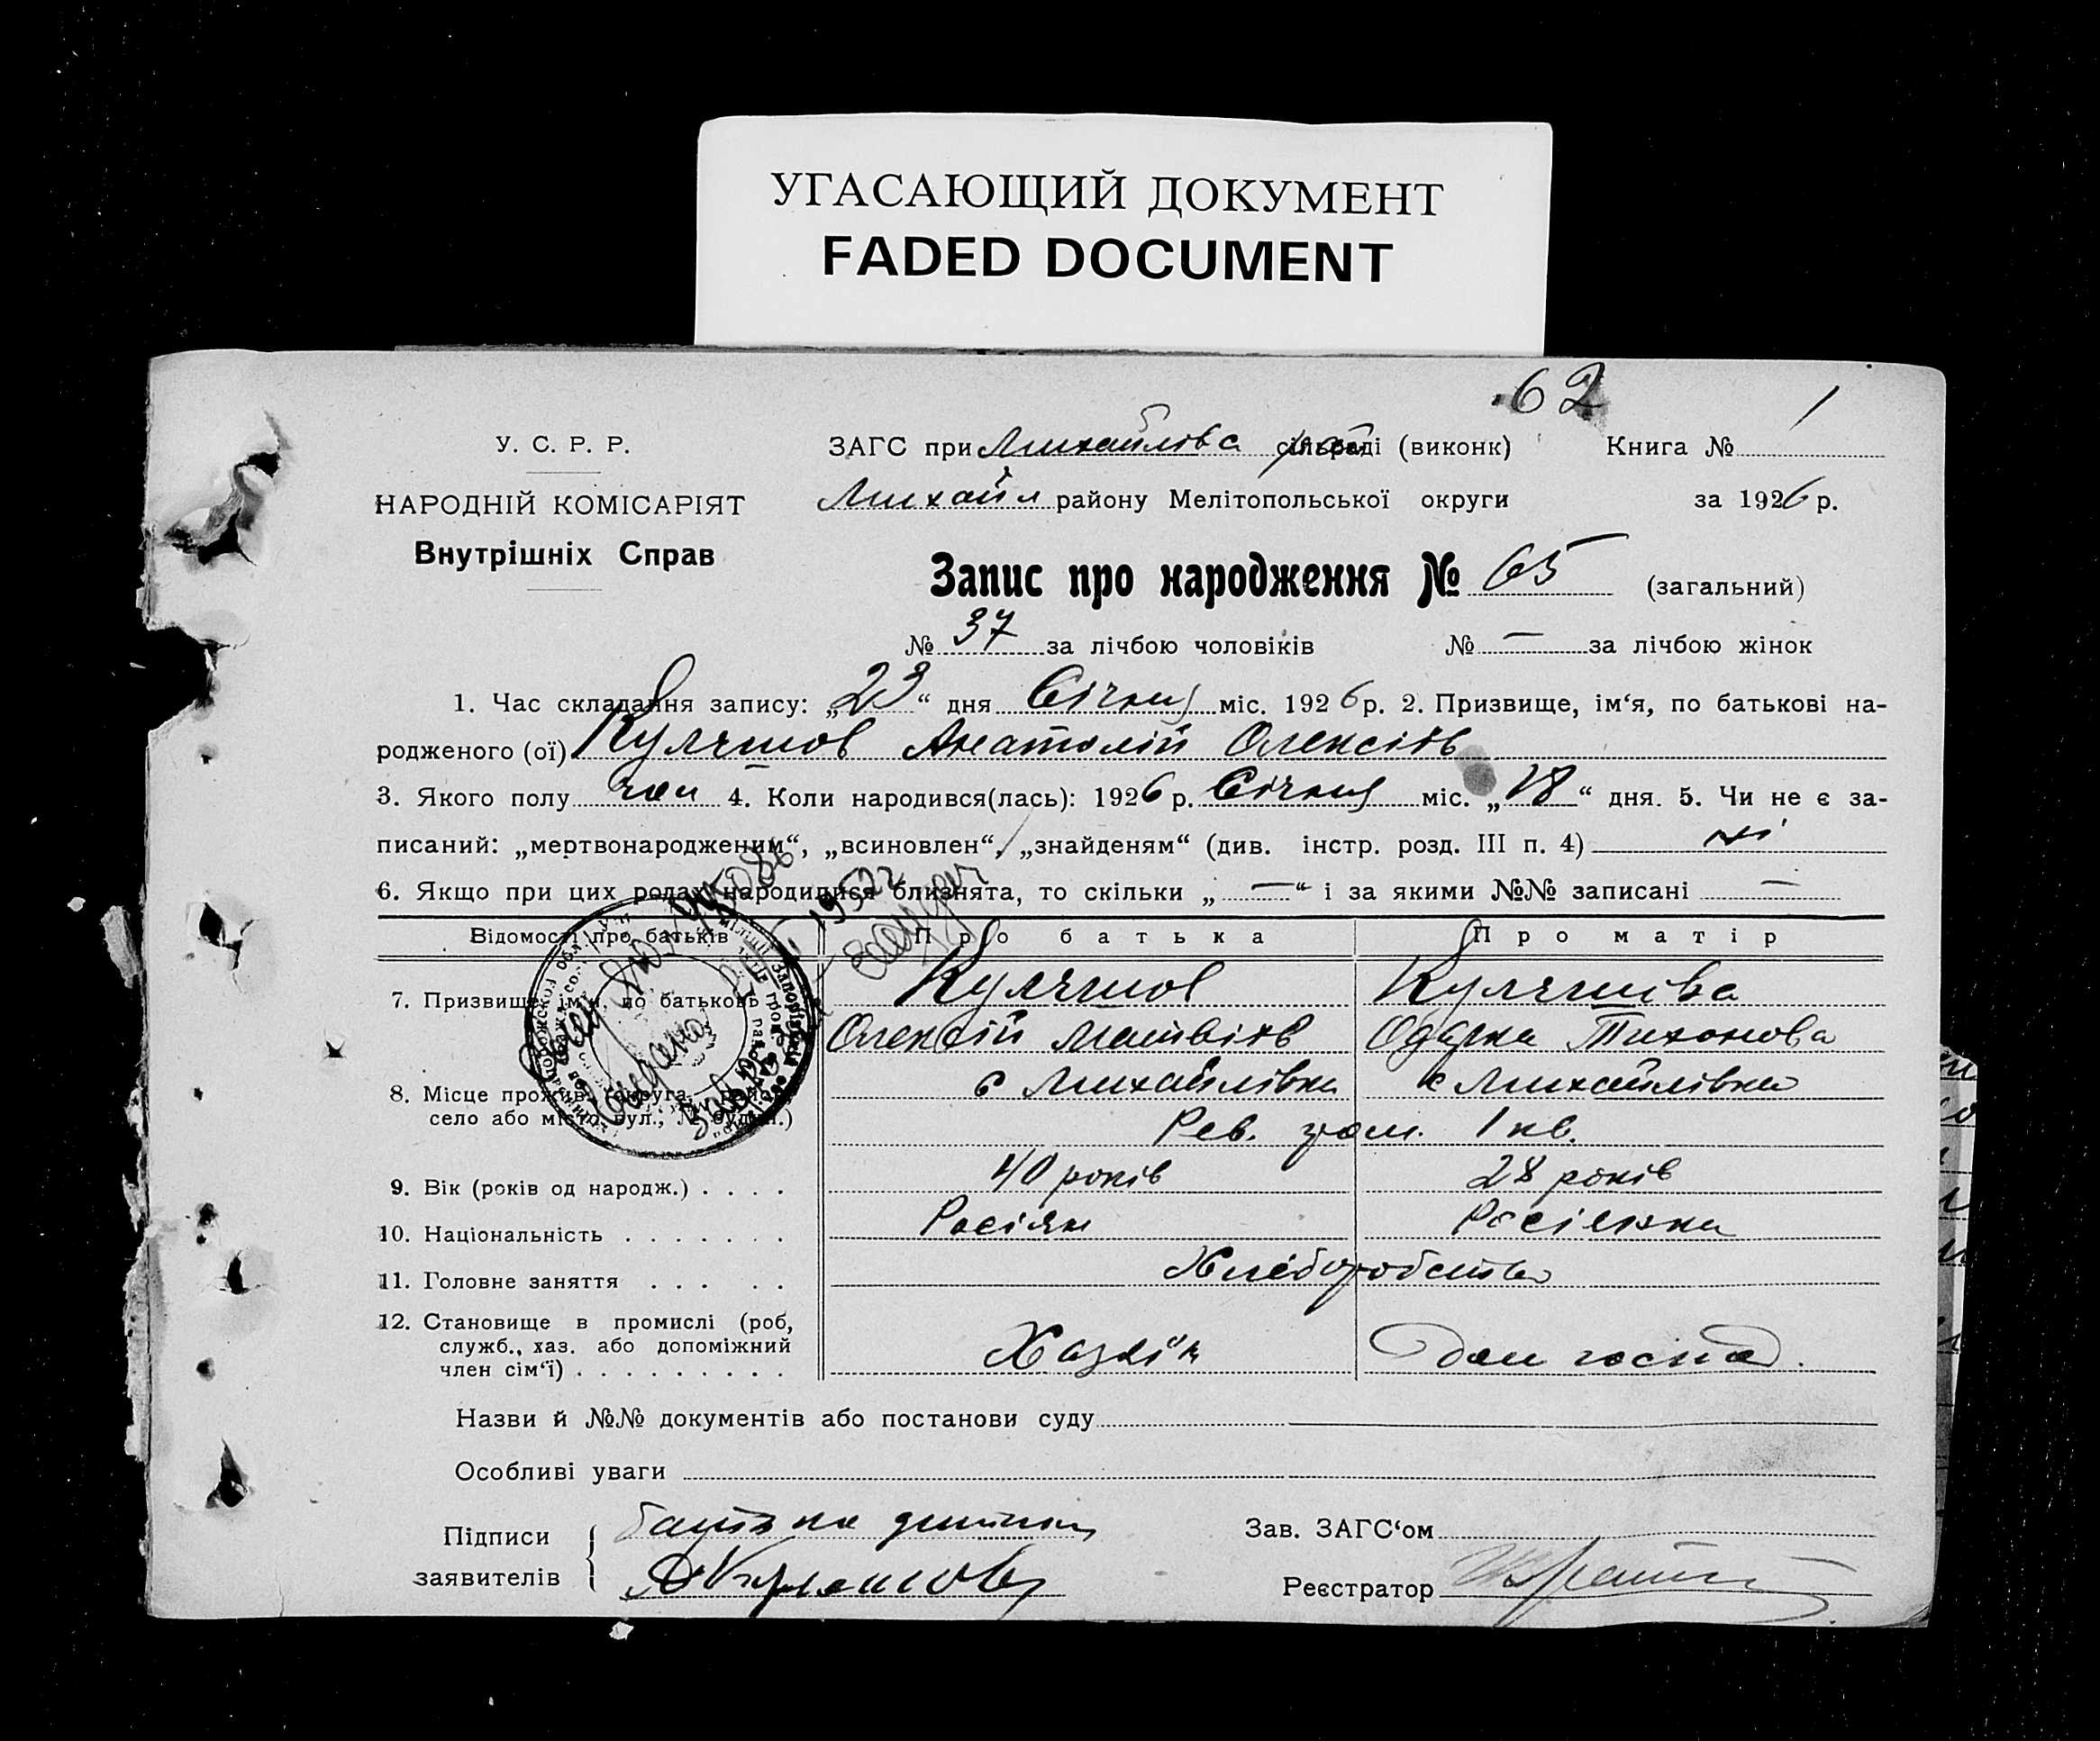 УГАСАЮЩИЙ ДОКУМЕНТ
FADED DOCUMENT
62
У. С. Р. Р.
НАРОДНІЙ КОМІСАРІЯТ
Внутрішніх Справ
ЗАГС при Михайлівс сільраді (виконк) Книга № 1
Михайл району Мелітопольської округи за 1926 р.
Запис про народження № 65 (загальний)
№ 37 за лічбою чоловіків № — за лічбою жінок
1. Час складання запису: „23“ дня Січня міс. 1926 р. 2. Призвище, ім‘я, по батькові на-
родженого (ої) Куляшов Анатолій Олексіїв
3. Якого полу чол 4. Коли народився(лась): 1926 р. Січня міс. „18“ дня. 5. Чи не є за-
писаний: „мертвонародженим“, „всиновлен“, „знайденям“ (див. інстр. розд. III п. 4) ні
6. Якщо при цих родах народилися близнята, то скільки „—“ і за якими №№ записані —
Відомості про батьків Про батька Про матір
7. Призвище, ім‘я, по батькові Куляшов Куляшова
Олексій Матвіїв Одарка Тихонова
8. Місце прожив. (округа, район, село або місто, вул., № будин.) с Михайлівка с Михайлівка
Рев. гром. 1 кв.
9. Вік (років од народж.) . . . . 40 років 28 років
10. Національність . . . . . . . Росіян Росіянка
11. Головне заняття . . . . . Хліборобство
12. Становище в промислі (роб,
служб., хаз. або допоміжний
член сім‘ї) . . . . . . . . . Хазяїн Дом господ.
Назви й №№ документів або постанови суду
Особливі уваги
Підписи
заявителів
батько дитини
Зав. ЗАГС‘ом
Реєстратор